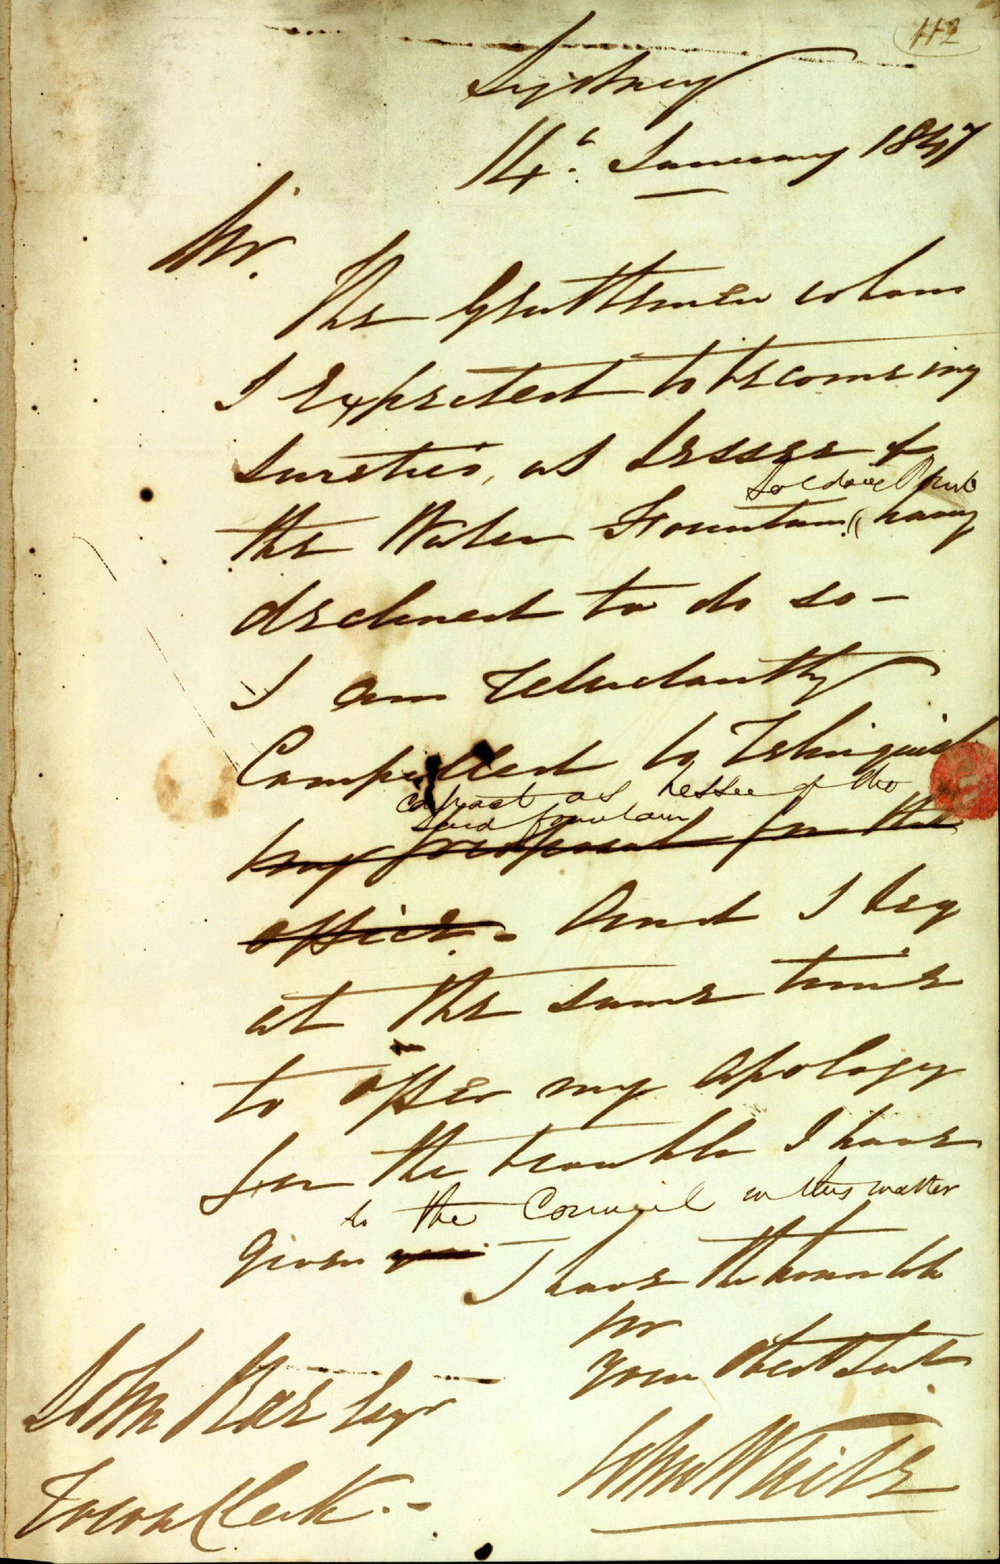 112
Sydney
14th January 1847
Sir.
The Gentlemen whom
I expected to become my
sureties, as Lessee of
the Water Fountain, having
declined to do so —
I am reluctantly
Compelled to relinquish
contract as Lessee of the
said fountain
my proposal for the
office. And I beg
at the same time
to offer my apology
for the trouble I have
to the Council in this matter
given you.
I have the honor to be
Sir
your Obedt Servt
John White
John Rae Esqr
Town Clerk. —